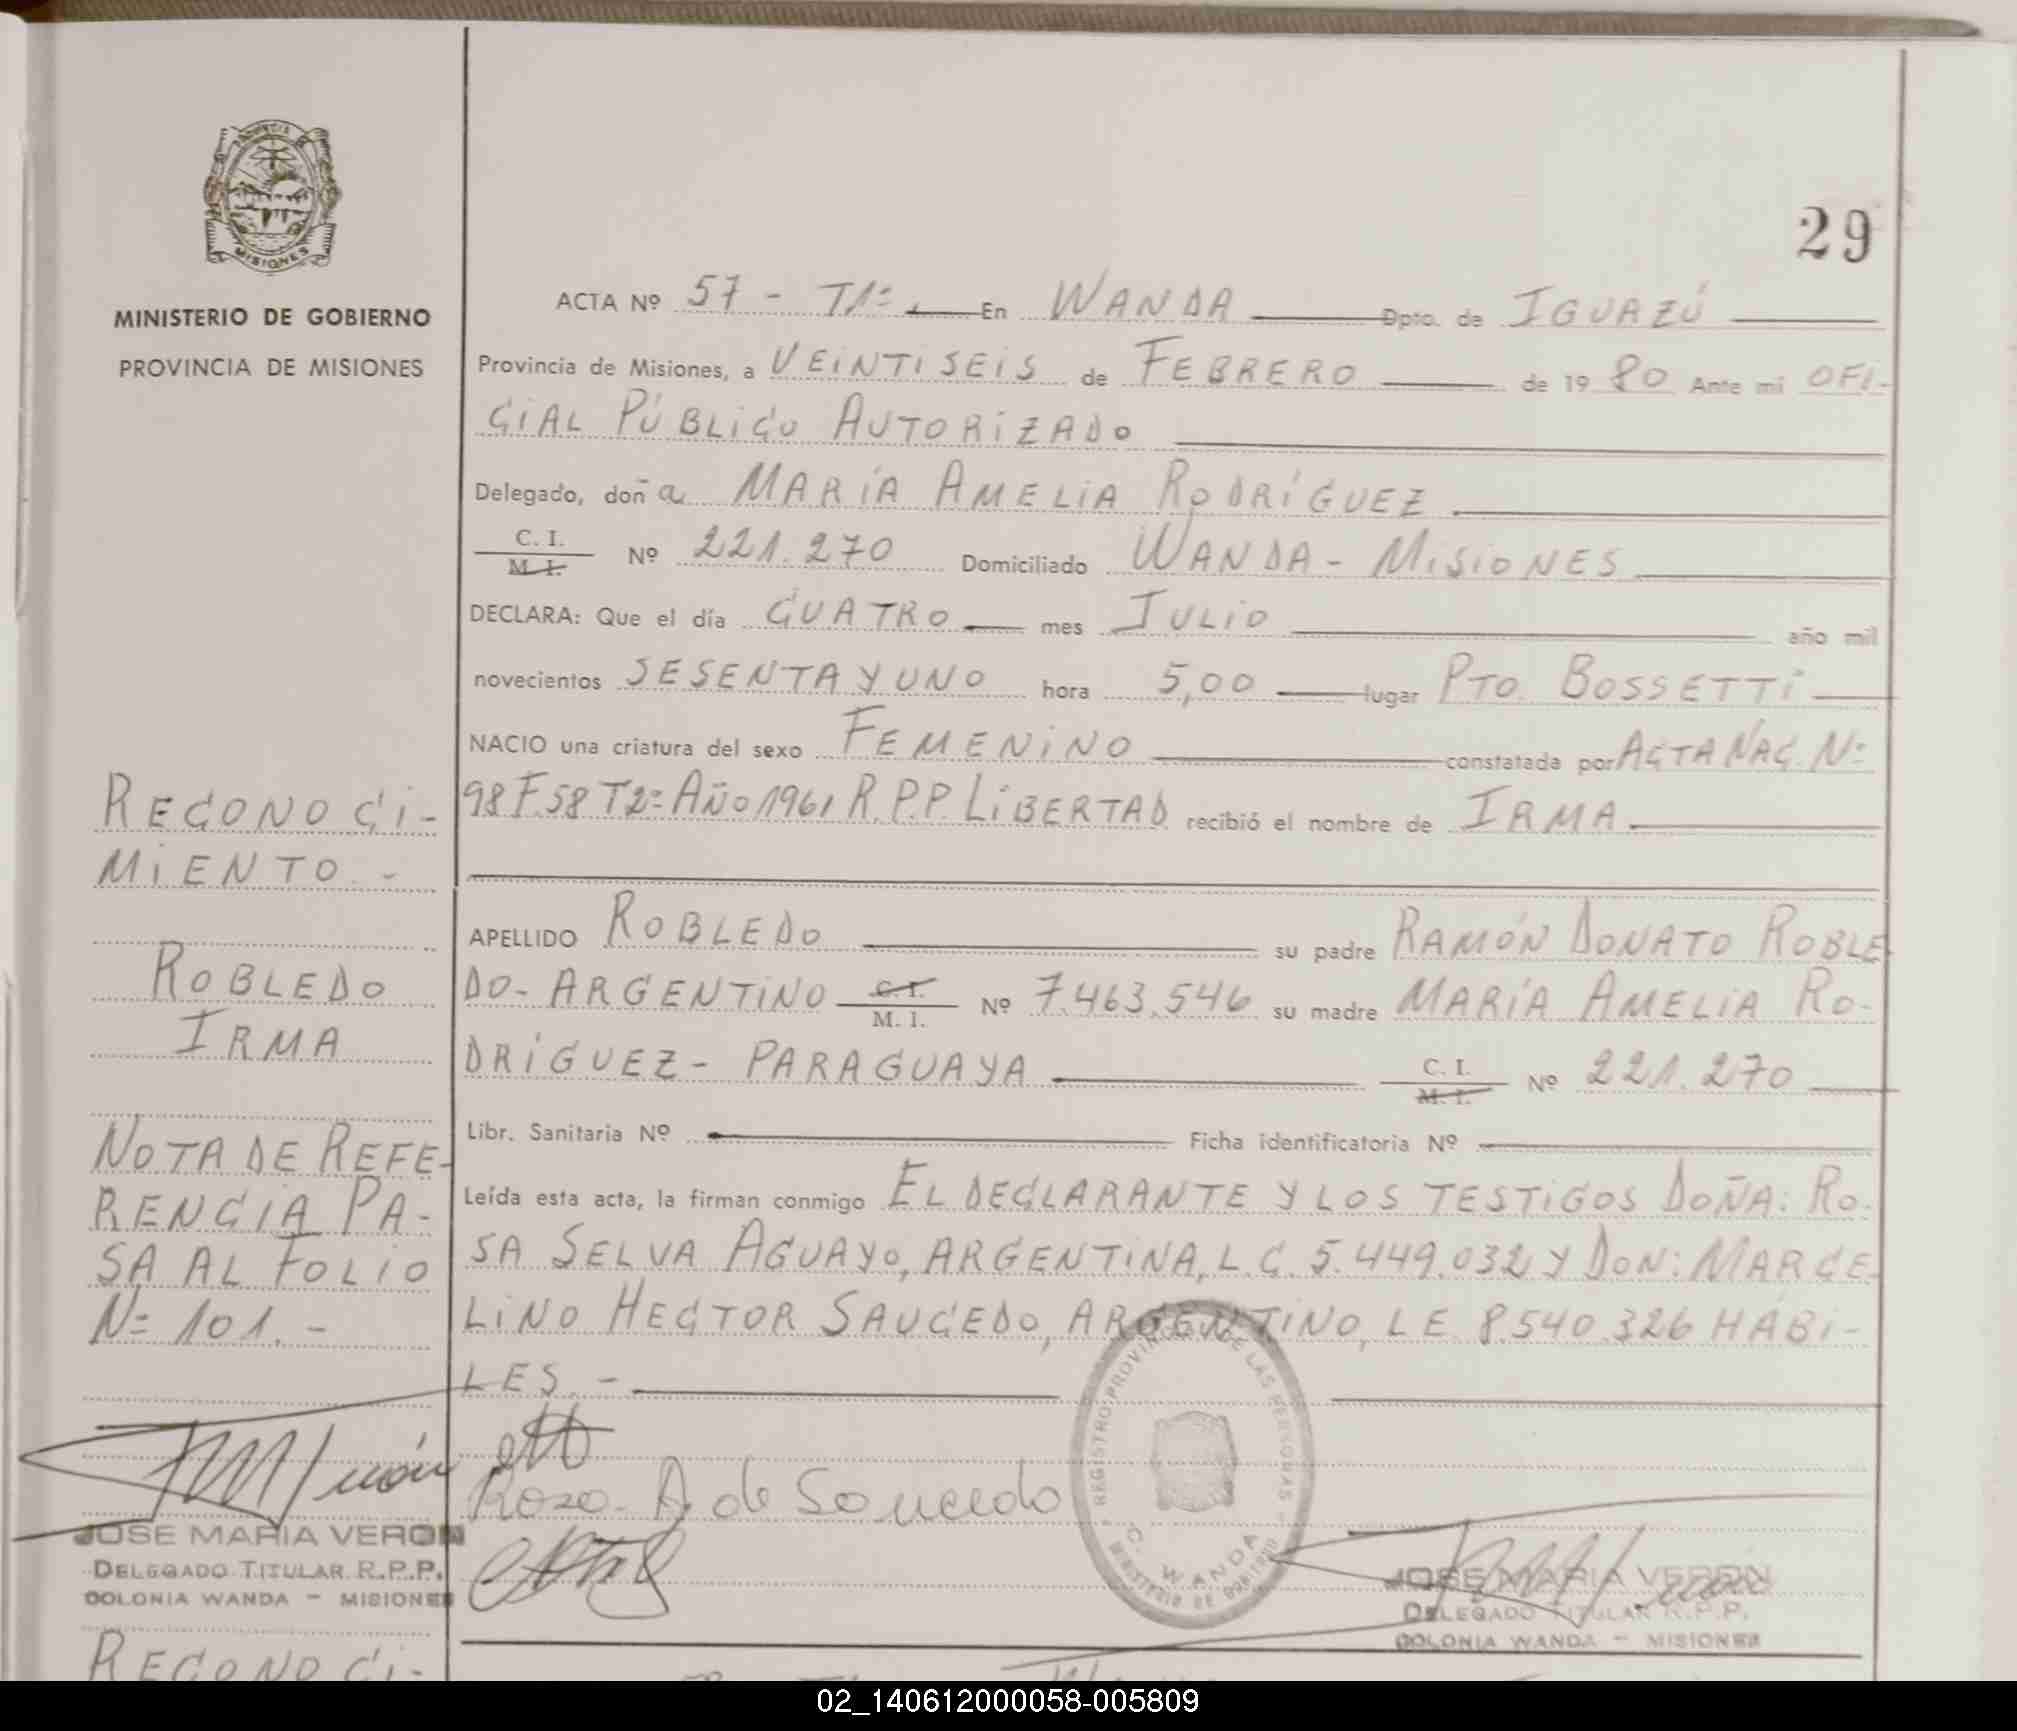 29
MISIONES
MINISTERIO DE GOBIERNO
PROVINCIA DE MISIONES
ACTA Nº 57 - T1º. En WANDA Dpto. de IGUAZÚ
Provincia de Misiones, a VEINTISEIS de FEBRERO de 1980 Ante mi OFI-
CIAL PÚBLICO AUTORIZADO
Delegado, doña MARÍA AMELIA RODRÍGUEZ
C. I.
M. I. Nº 221.270 Domiciliado WANDA - MISIONES
DECLARA: Que el día CUATRO mes JULIO año mil
novecientos SESENTA Y UNO hora 5,00 lugar PTO. BOSSETTI
NACIO una criatura del sexo FEMENINO constatada por ACTA NAC. Nº
98 F.58 T2º AÑO 1961 R.P.P. LIBERTAD recibió el nombre de IRMA
APELLIDO ROBLEDO su padre RAMÓN DONATO ROBLE
DO - ARGENTINO C. I.
M. I. Nº 7.463.546 su madre MARÍA AMELIA RO-
DRÍGUEZ - PARAGUAYA C. I.
M. I. Nº 221.270
Libr. Sanitaria Nº Ficha identificatoria Nº
Leída esta acta, la firman conmigo EL DECLARANTE Y LOS TESTIGOS DOÑA: RO-
SA SELVA AGUAYO, ARGENTINA, L.C. 5.449.032 Y DON: MARCE-
LINO HECTOR SAUCEDO, ARGENTINO, L E 8.540.326 HÁBI-
LES. -
RECONOCI-
MIENTO. -
ROBLEDO
IRMA
NOTA DE REFE-
RENCIA PA-
SA AL FOLIO
Nº 101. -
Rosa A. de Saucedo
REGISTRO PROVINCIAL DE LAS PERSONAS
C. WANDA
MINISTERIO DE GOBIERNO
JOSE MARIA VERON
DELEGADO TITULAR R.P.P.
COLONIA WANDA - MISIONES
JOSE MARIA VERON
DELEGADO TITULAR R.P.P.
COLONIA WANDA - MISIONES
RECONOCI-
02_140612000058-005809